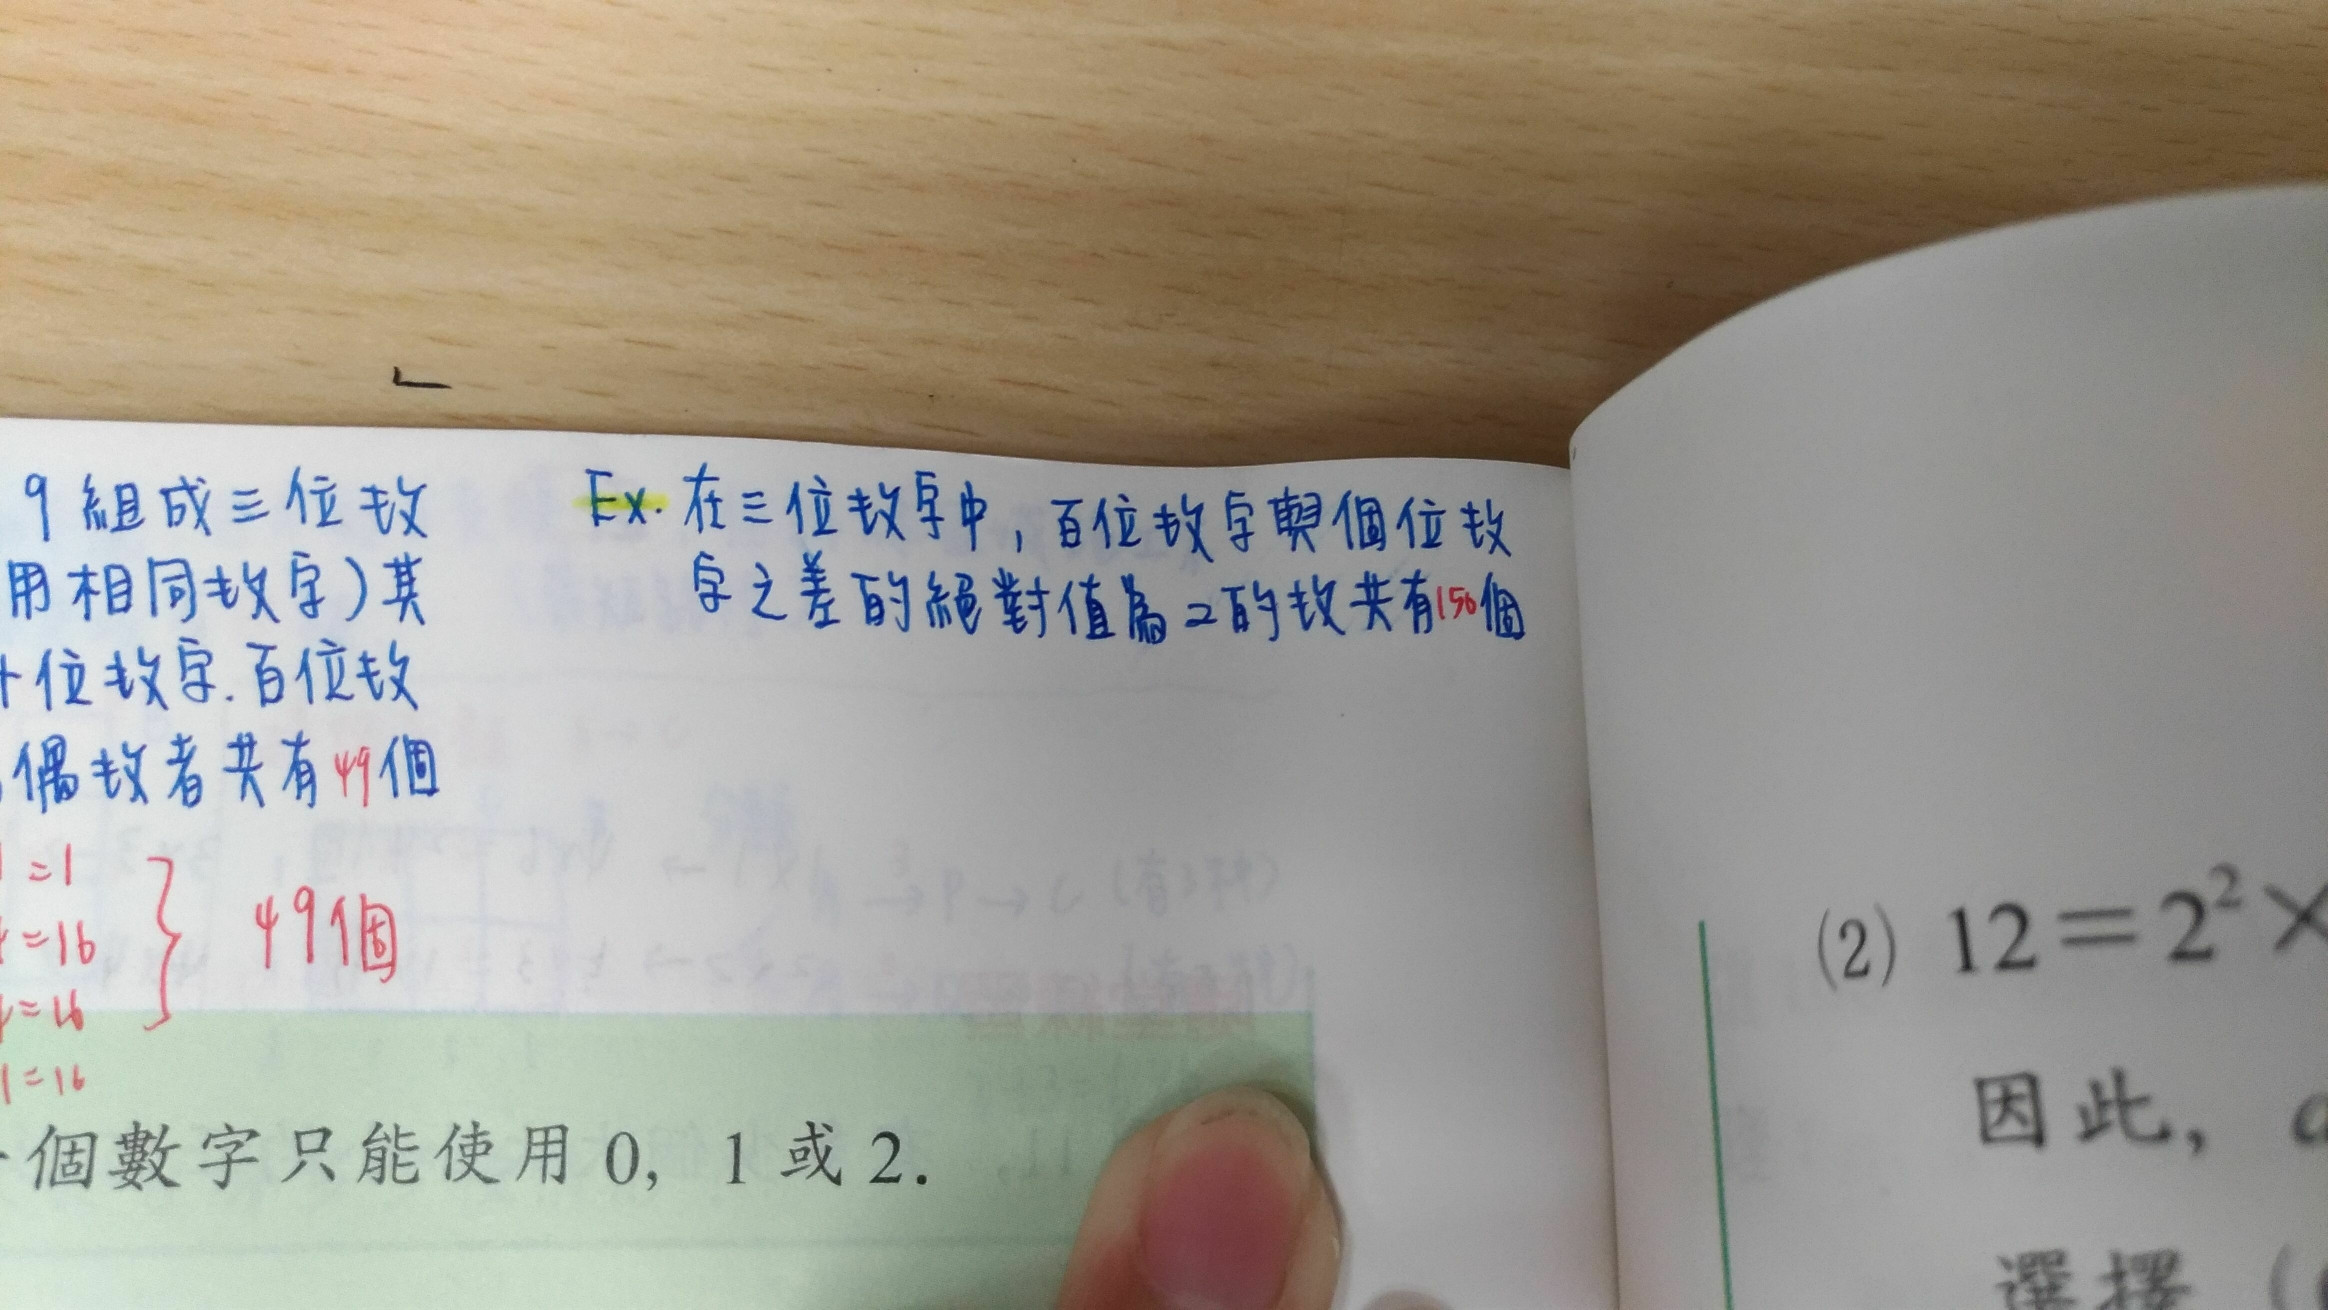 9組成三位數
用相同數字)其
十位數字.百位數
偶數者共有49個
=1
=16
=16
1=16
49個
Ex. 在三位數字中,百位數字與個位數
字之差的絕對值為2的數共有150個
個數字只能使用 0, 1 或 2.
(2) 12=2²×
因此,
選擇